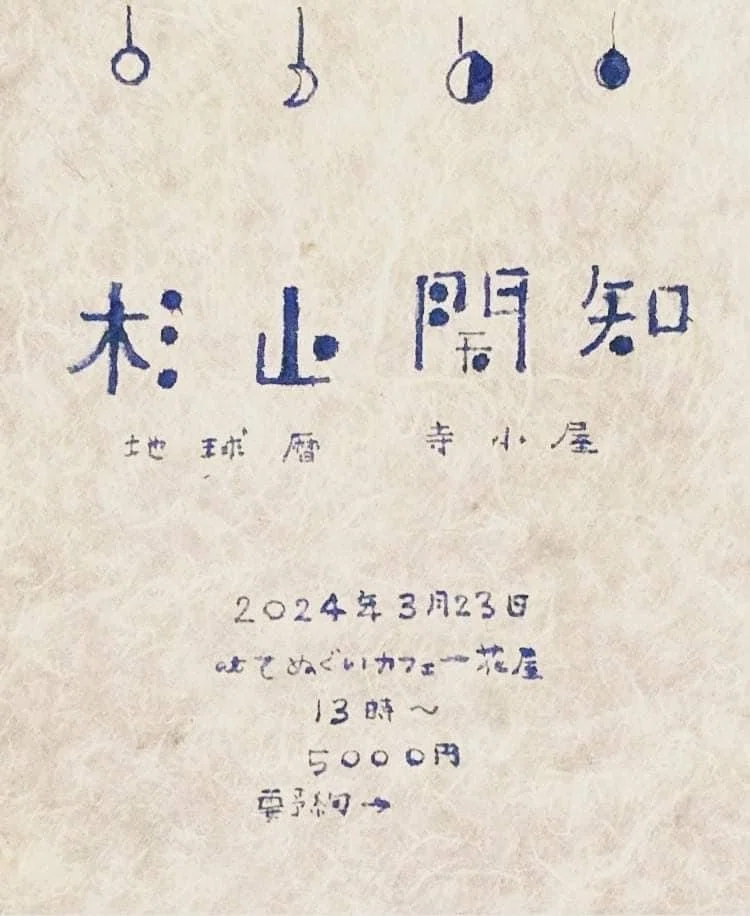 杉山開知
地球暦 寺小屋
2024年3月23日
atてぬぐいカフェ一花屋
13時~
5000円
要予約→